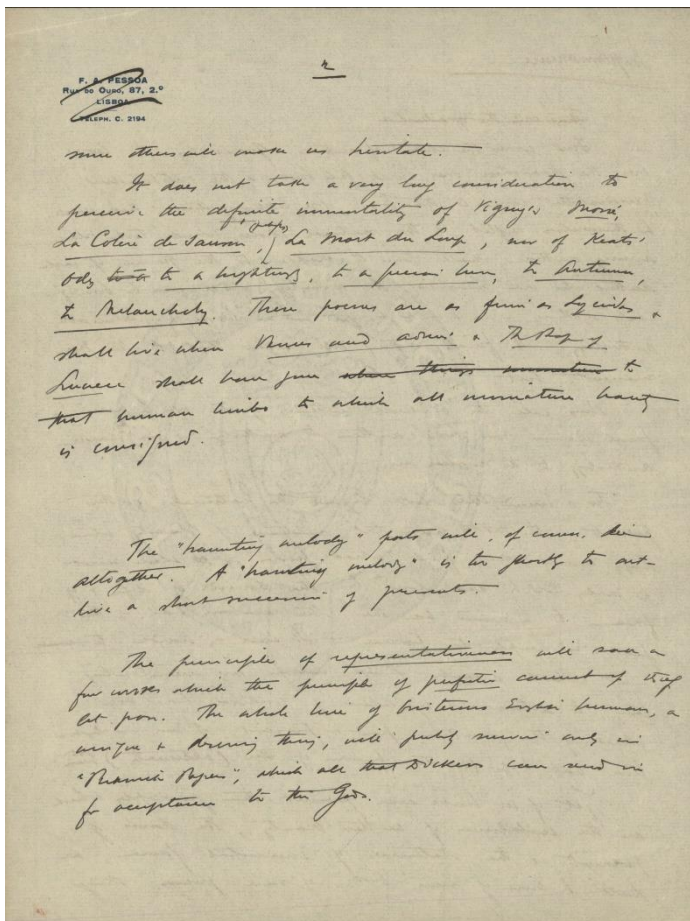 2
F. A. PESSOA
RUA DO OURO, 87, 2.º
LISBOA
TELEPH. C. 2194
some others will make us hesitate.
It does not take a very long consideration to
perceive the definite immortality of Vigny's Moïse,
La Colère de Samson, & perhaps La Mort du Loup, nor of Keats'
odes to a nightingale, to a Grecian Urn, to Autumn,
to Melancholy. These poems are as firm as Lycidas &
shall live when Venus and Adonis & The Rape of
Lucrece shall have gone where things immature to
that human limbo to which all immature beauty
is consigned.
The "haunting melody" poets will, of course, die
altogether. A "haunting melody" is too ghostly to out-
live a short succession of presents.
The principle of representativeness will save a
few works which the principle of perfection cannot
let pass. The whole line of boisterous English humour, a
unique & deserving thing, will probably survive only in
"Pickwick Papers", which all that Dickens can send in
for acceptance to the Gods.